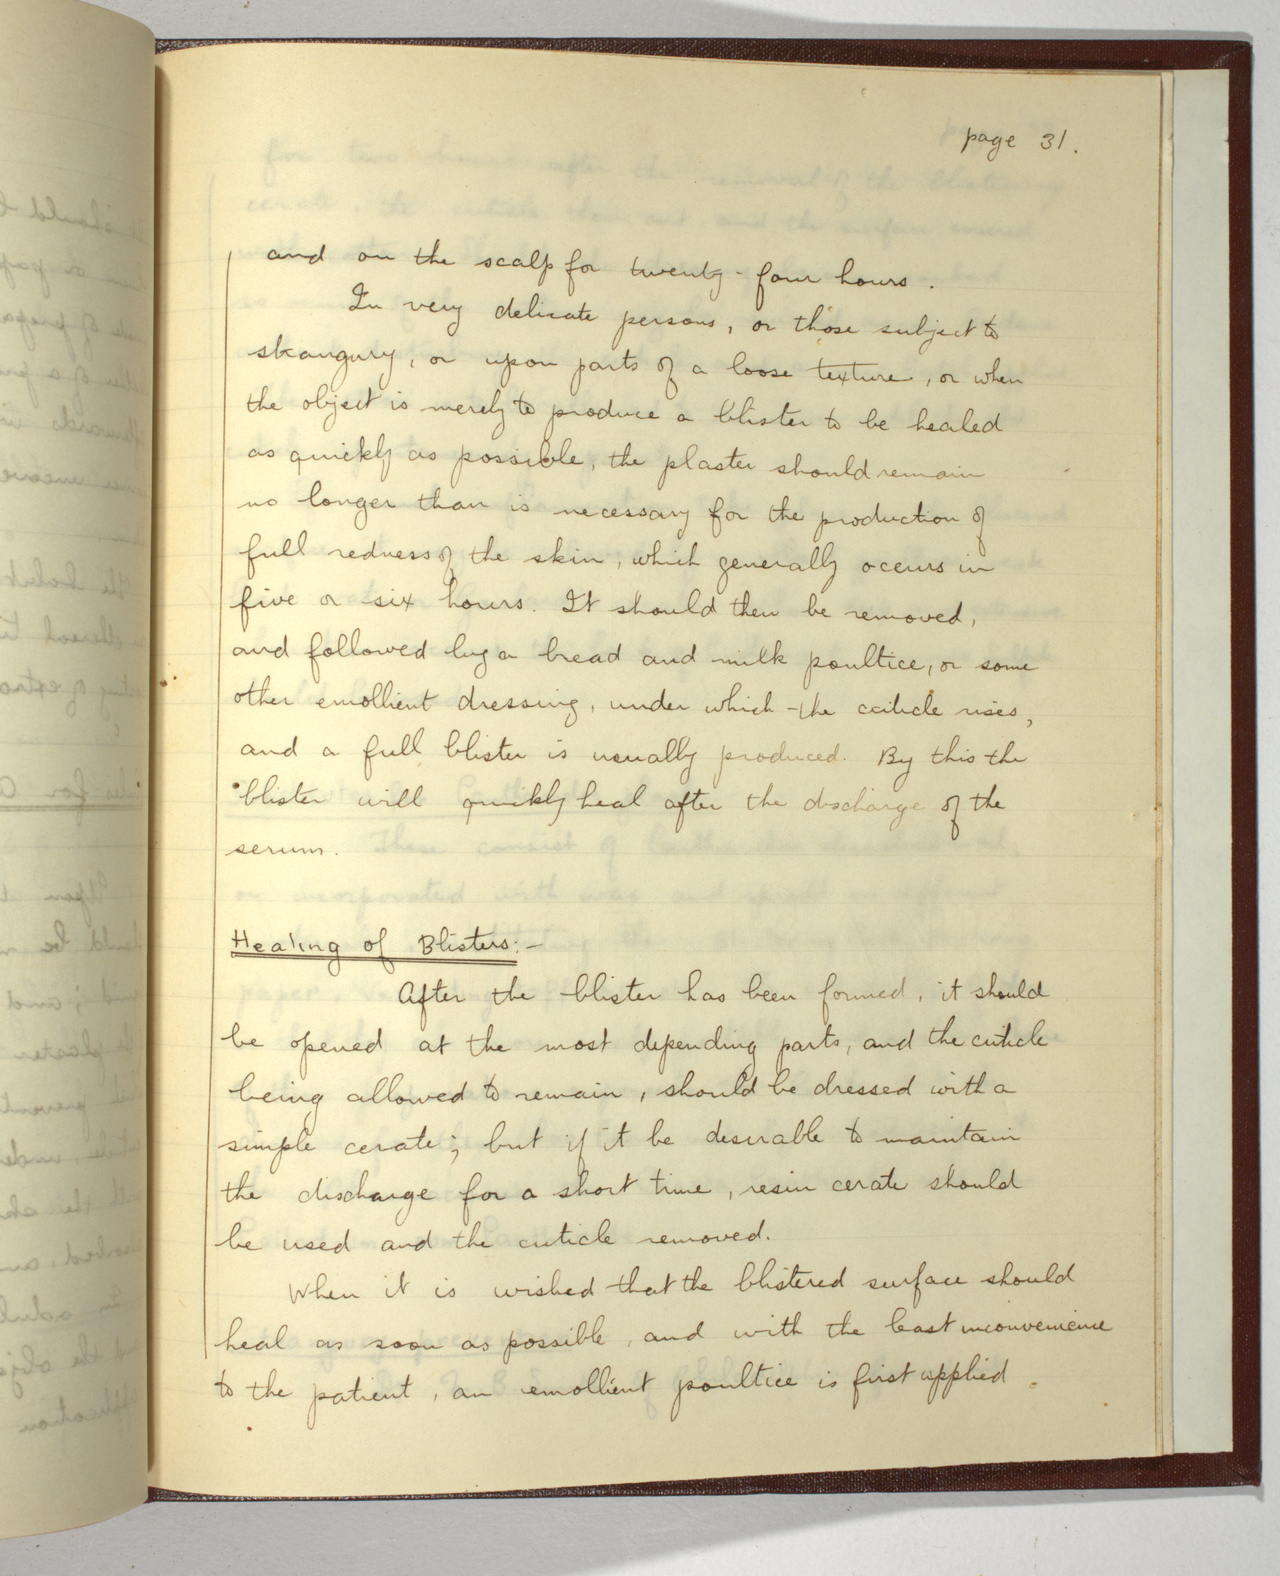 page 31.
and on the scalp for twenty-four hours.
In very delicate persons, or those subject to
strangury, or upon parts of a loose texture, or when
the object is merely to produce a blister to be healed
as quickly as possible, the plaster should remain
no longer than is necessary for the production of
full redness of the skin, which generally occurs in
five or six hours. It should then be removed,
and followed by a bread and milk poultice, or some
other emollient dressing, under which the cuticle rises,
and a full blister is usually produced. By this the
blister will quickly heal after the discharge of the
serum.
Healing of Blisters:-
After the blister has been formed, it should
be opened at the most depending parts, and the cuticle
being allowed to remain, should be dressed with a
simple cerate; but if it be desirable to maintain
the discharge for a short time, resin cerate should
be used and the cuticle removed.
When it is wished that the blistered surface should
heal as soon as possible, and with the least inconvenience
to the patient, an emollient poultice is first applied